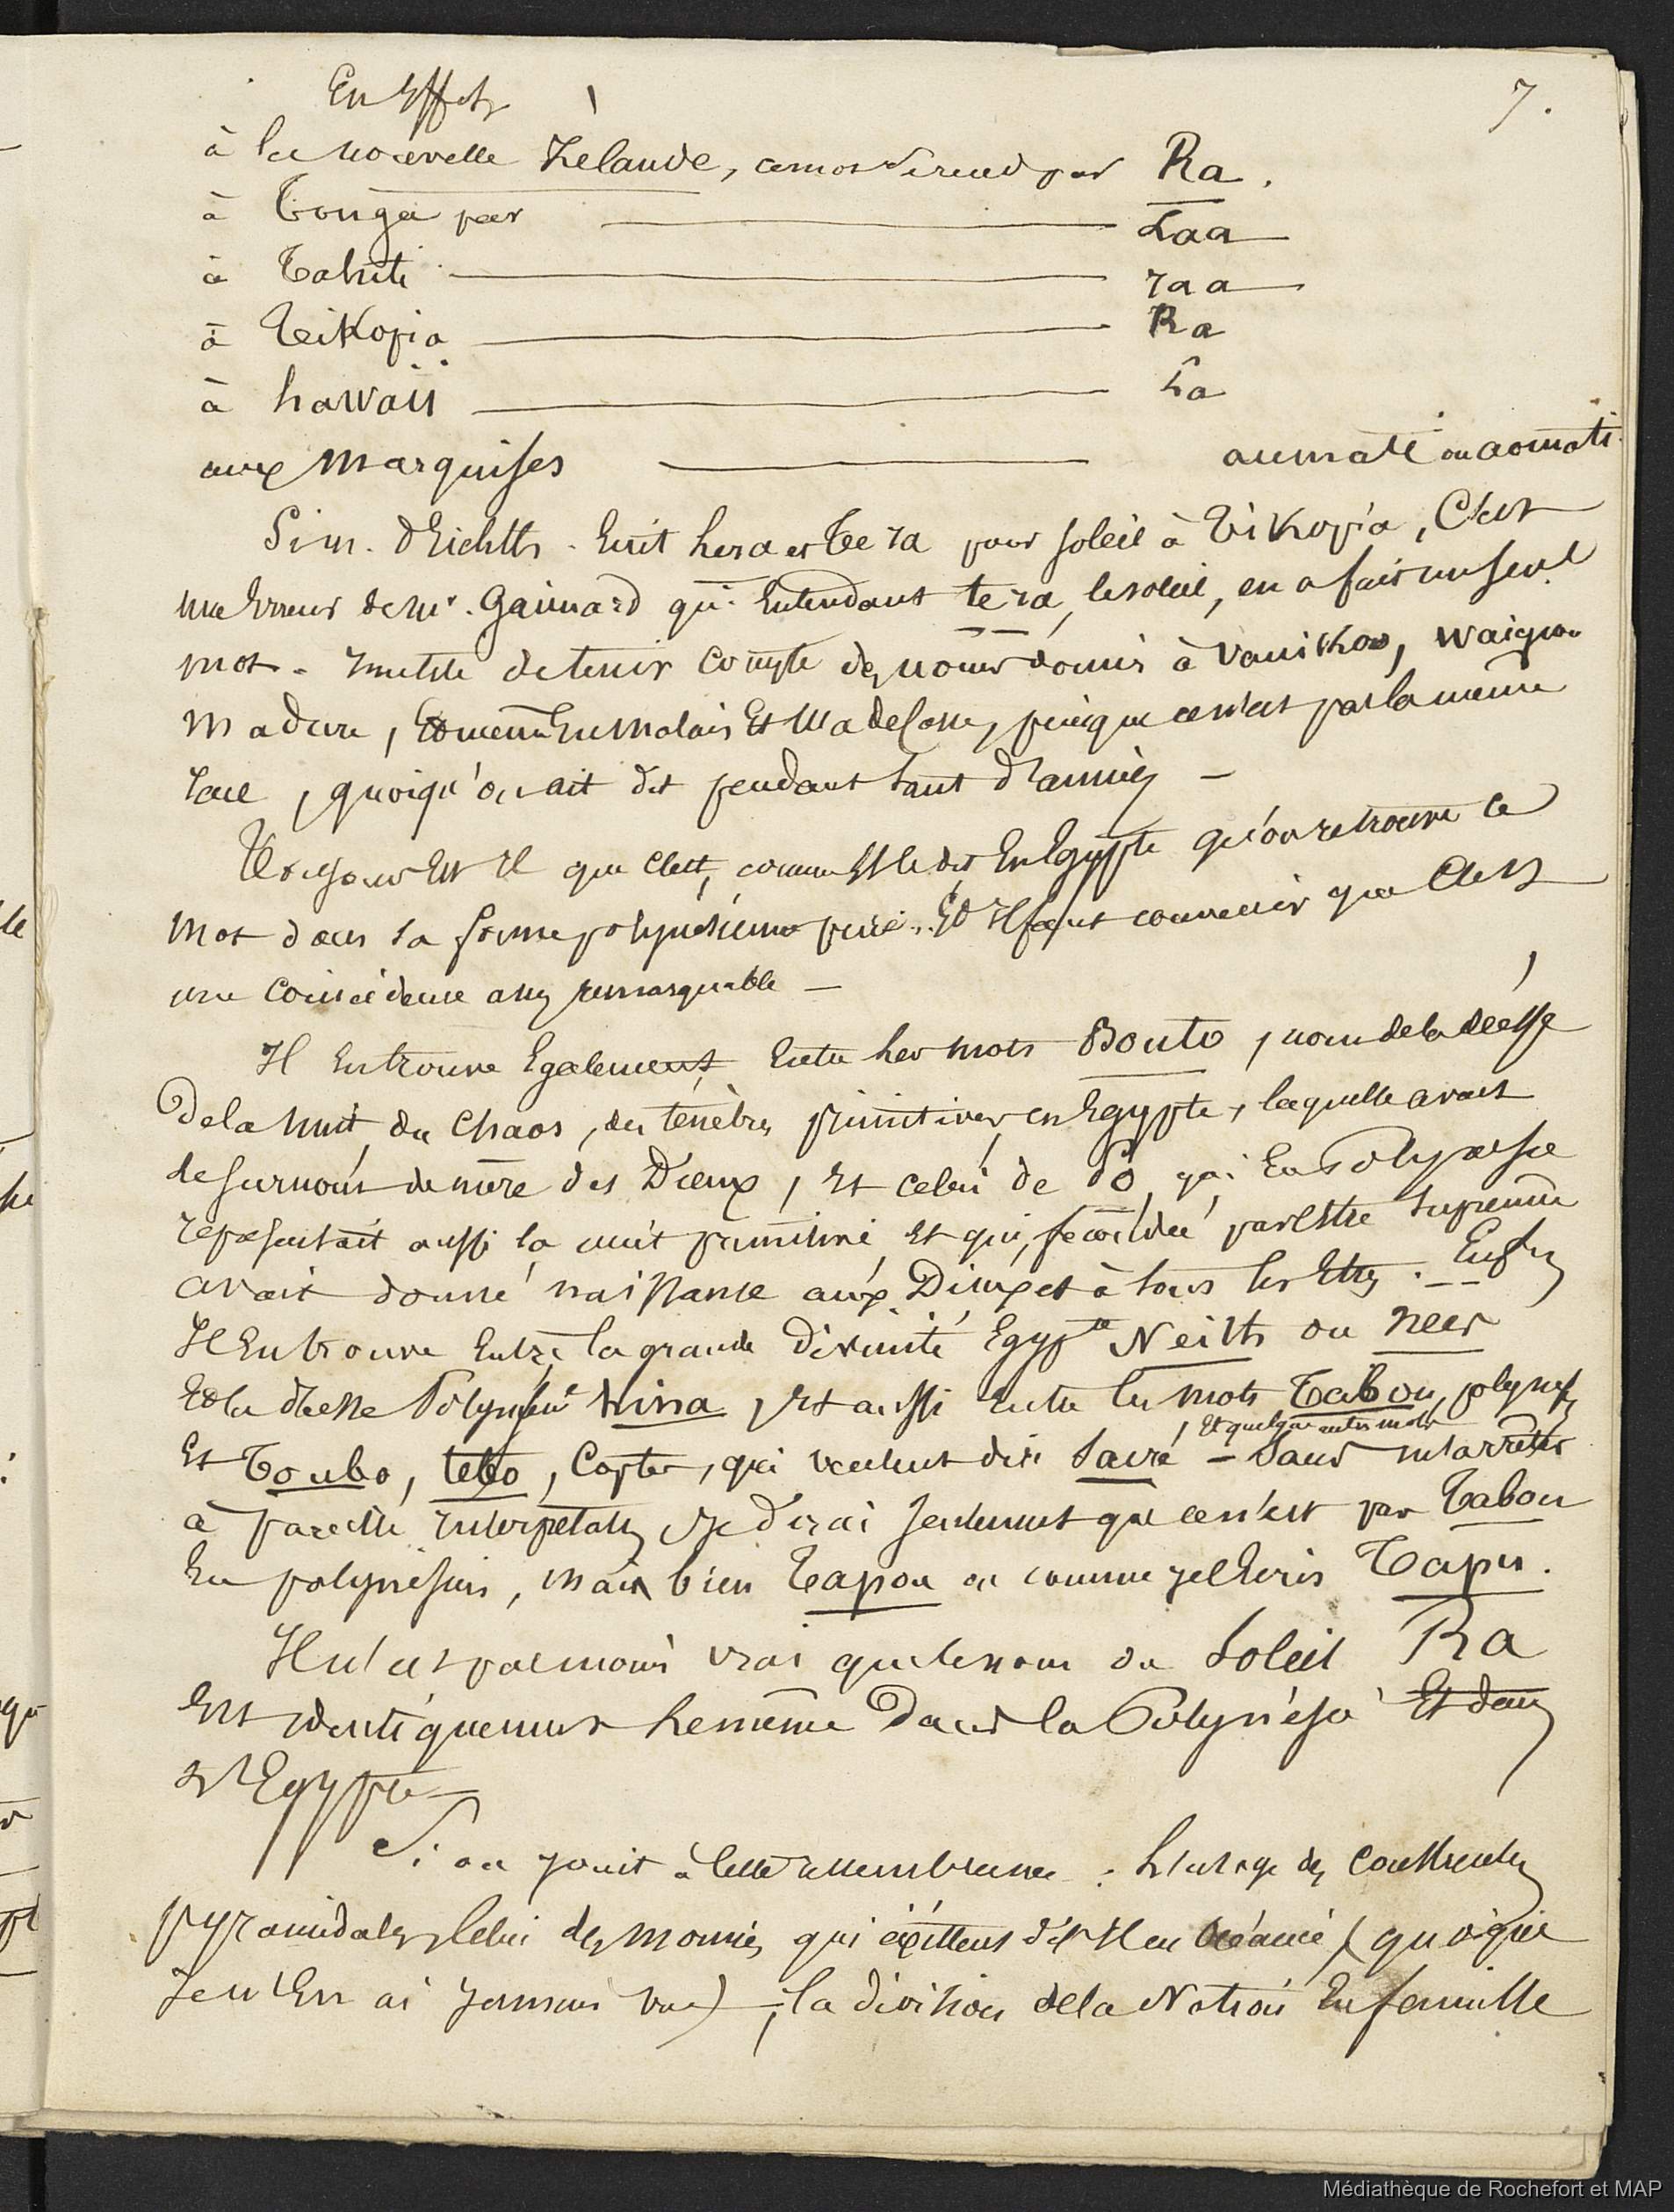 7.
En Effet
à la nouvelle Zélande, ce mot se rend par Ra.
à Tonga par Laa
à Tahiti raa
à Tikopia Ra
à hawaii La
aux Marquises aumati ou aomati
Si m. d'Eichth. Ecrit hera et Te ra pour soleil à Tikopia, C'est
une Erreur de mr. Gaimard qui Entendant te ra, le soleil, en a fait un seul
mot - Inutile de tenir compte des noms donnés à Vanikoro, Waigiou
Madura, Et même En Malais Et Madekass, puisque ce n'est pas la même
race, quoiqu'on ait dit pendant tant d'années -
Toujours Est Il que c'est, comme Il le dit, En Egypte qu'on retrouve le
mot dans sa forme polynésienne pure. Et Il faut convenir que C'est
une Coincidence assez remarquable -
Il En trouve Egalement Entre les mots Bouto, nom de la déesse
De la Nuit, du Chaos, des tenèbres primitives en Egypte, laquelle avait
le surnom de mère des Dieux, Et celui de Pô, qui En Polynésie
représentait aussi la nuit primitive Et qui, fécondée par l'Etre Suprême
avait donné naissance aux Dieux et à tous les Etres. Enfin
Il En trouve Entre la grande Divinité Egypne Neith ou neer
Et la déesse Polynésne hina, Et aussi Entre les mots Tabou, polynes,
Et Toubo, tebo, Coptes, et quelques autres mots qui veulent dire Sacré - Sans m'arrêter
à pareille Interprétation Je dirai seulement que ce n'est pas Tabou
En polynésien, mais bien Tapou ou comme je l'Ecris Tapu.
Il n'est pas moins vrai que le nom du Soleil Ra
Est identiquement le même Dans la Polynésie Et dans
l'Egypte -
Si on joint à cette ressemblance: L'usage des Constructions
pyramidales, Celui des momies qui existent dit Il en Océanie (quoique
Je n'En ai jamais vu); la division de la Nation En famille
Médiathèque de Rochefort et MAP